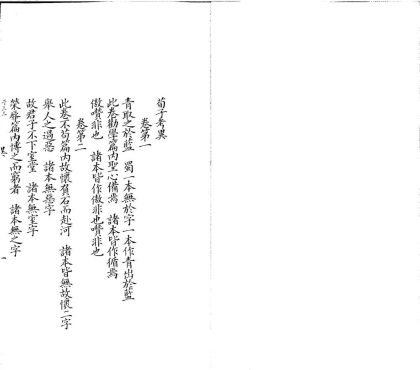 荀子考異
卷第一
青取之於藍 蜀一本無於字一本作青出於藍
此卷勸學篇內聖心備焉 諸本皆作循焉
傲囋非也 諸本皆作傲非也囋非也
卷第二
此卷不苟篇內故懷負石而赴河 諸本皆無故懷二字
舉人之過惡 諸本無惡字
故君子不下室堂 諸本無室字
榮辱篇內博之而窮者 諸本無之字